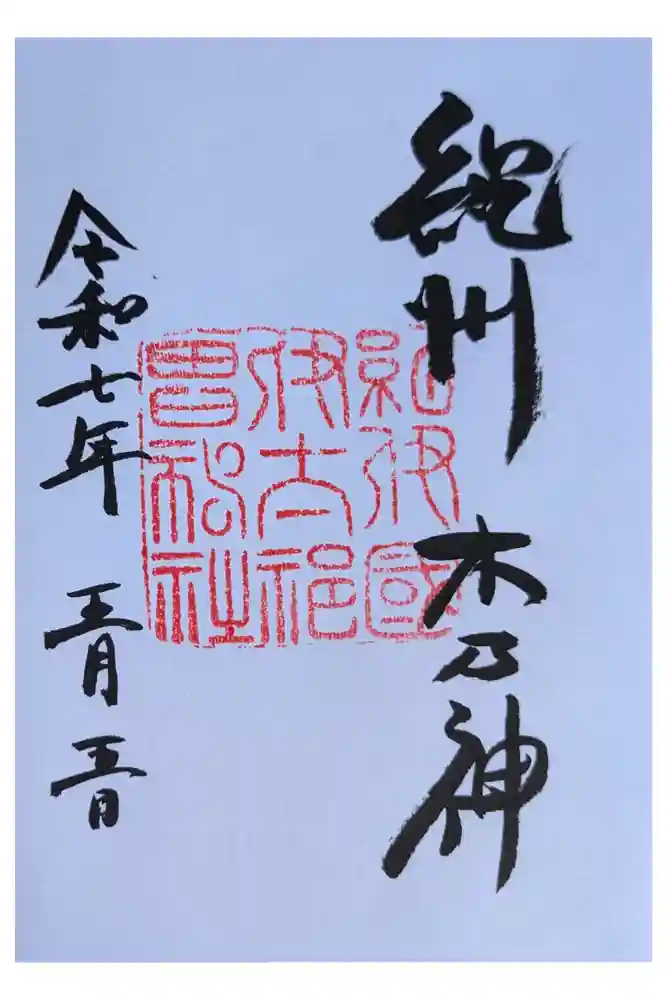 紀州
木乃神
紀伊國
伊太祁
曽神社
令和七年 五月 五日